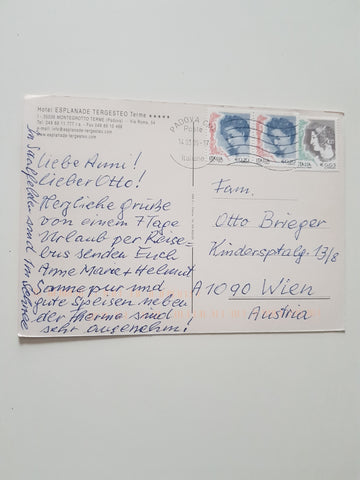 Hotel ESPLANADE TERGESTEO Terme ★★★★★
I - 35036 MONTEGROTTO TERME (Padova) - Via Roma, 54
Tel. 049 89 11 777 r.a. - Fax 049 89 10 488
e-mail: info@esplanade-tergesteo.com
www.esplanade-tergesteo.com
Liebe Anni!
Lieber Otto!
Herzliche Grüße
von einem 7 Tage
Urlaub per Reise-
bus senden Euch
Anne Marie + Helmut
Sonne pur und
gute Speisen neben
der Therme sind
sehr angenehm!
In Saalfelden sind im Schnee
PADOVA
Poste
Italiane
ITALIA
ITALIA
ITALIA
Fam.
Otto Brieger
Kinderspitalg. 13/8
A 1090 Wien
Austria